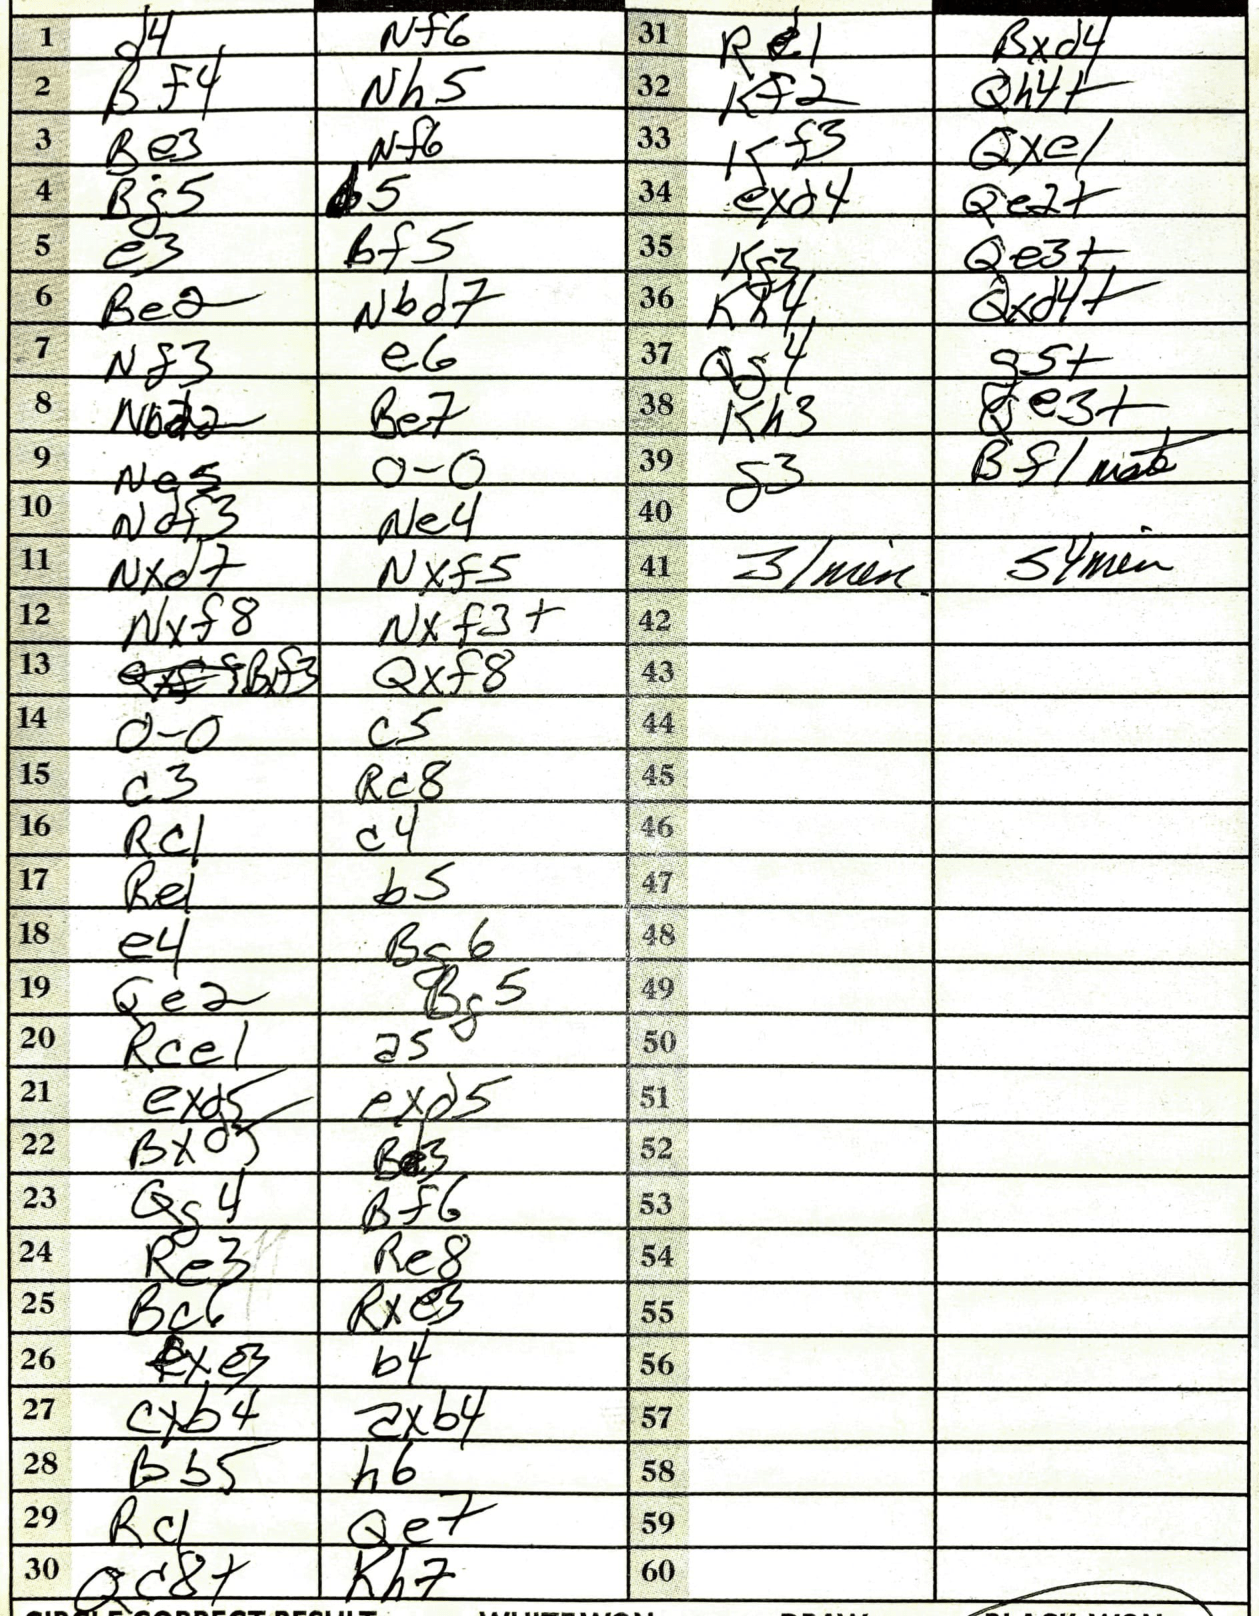 1 d4 Nf6 31 Re1 Bxd4
2 Bf4 Nh5 32 Kf2 Qh4+
3 Be3 Nf6 33 Kf3 Qxe1
4 Bg5 d5 34 exd4 Qe2+
5 e3 Bf5 35 Kg3 Qe3+
6 Be2 Nbd7 36 Kh4 Qxd4+
7 Nf3 e6 37 Qg4 g5+
8 Nbd2 Be7 38 Kh3 Qe3+
9 Ne5 0-0 39 g3 Bf1 mate
10 Ndf3 Ne4 40
11 Nxd7 Nxf5 41 31min. 54min
12 Nxf8 Nxf3+ 42
13 Bxf3 Qxf8 43
14 0-0 c5 44
15 c3 Rc8 45
16 Rc1 c4 46
17 Re1 b5 47
18 e4 Bg6 48
19 Qe2 Bg5 49
20 Rce1 a5 50
21 exd5 exd5 51
22 Bxd5 Bd3 52
23 Qg4 Bf6 53
24 Re3 Re8 54
25 Bc6 Rxe3 55
26 fxe3 b4 56
27 cxb4 axb4 57
28 Bb5 h6 58
29 Rc1 Qe7 59
30 Qc8+ Kh7 60
CIRCLE CORRECT RESULT WHITE WON DRAW BLACK WON